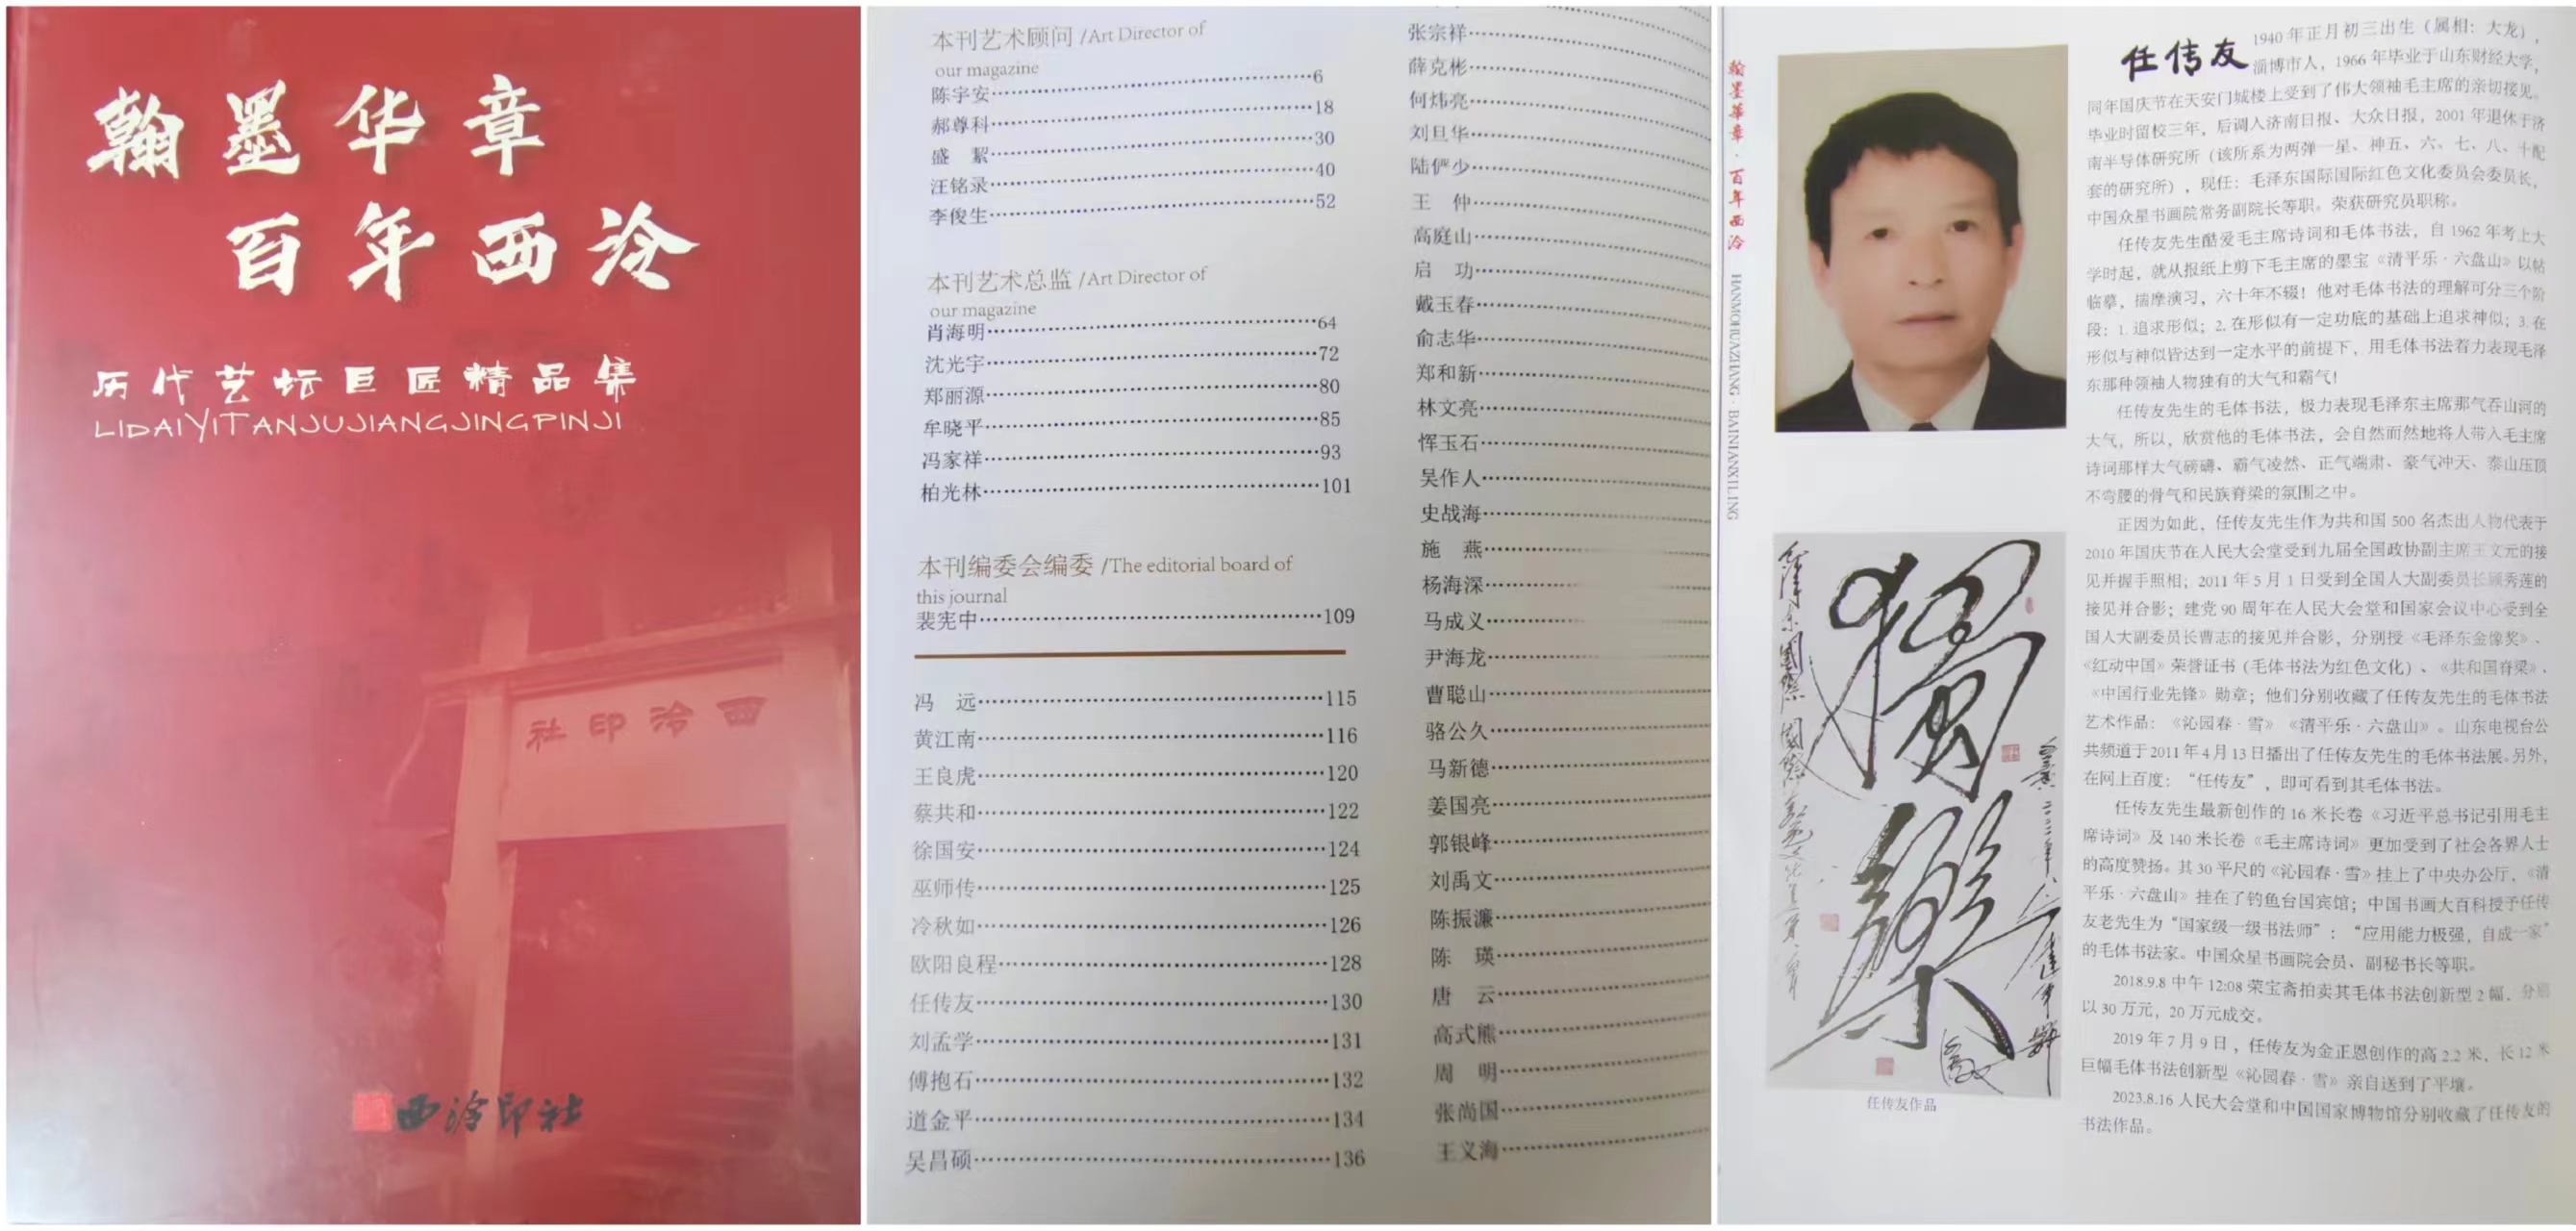 翰墨华章
百年西泠
历代艺坛巨匠精品集
LIDAIYITANJUJIANGJINGPINJI
西泠印社
西泠印社
本刊艺术顾问 /Art Director of
our magazine
陈宇安 6
郝尊科 18
盛 絮 30
汪铭录 40
李俊生 52
本刊艺术总监 /Art Director of
our magazine
肖海明 64
沈光宇 72
郑丽源 80
牟晓平 85
冯家祥 93
柏光林 101
本刊编委会编委 /The editorial board of
this journal
裴宪中 109
冯 远 115
黄江南 116
王良虎 120
蔡共和 122
徐国安 124
巫师传 125
冷秋如 126
欧阳良程 128
任传友 130
刘孟学 131
傅抱石 132
道金平 134
吴昌硕 136
张宗祥
薛克彬
何炜亮
刘旦华
陆俨少
王 仲
高庭山
启 功
戴玉春
俞志华
郑和新
林文亮
恽玉石
吴作人
史战海
施 燕
杨海深
马成义
尹海龙
曹聪山
骆公久
马新德
姜国亮
郭银峰
刘禹文
陈振濂
陈 瑛
唐 云
高式熊
周 明
张尚国
王义海
翰墨華章·百年西泠
HANMOHUAZHANG · BAINIANXILING
任传友
1940 年正月初三出生（属相：大龙），
淄博市人，1966 年毕业于山东财经大学，
同年国庆节在天安门城楼上受到了伟大领袖毛主席的亲切接见。
毕业时留校三年，后调人济南日报、大众日报，2001 年退休于济
南半导体研究所（该所系为两弹一星、神五、六、七、八、十配
套的研究所），现任：毛泽东国际国际红色文化委员会委员长，
中国众星书画院常务副院长等职。荣获研究员职称。
任传友先生酷爱毛主席诗词和毛体书法，自 1962 年考上大
学时起，就从报纸上剪下毛主席的墨宝《清平乐·六盘山》以帖
临摹，揣摩演习，六十年不辍！他对毛体书法的理解可分三个阶
段：1. 追求形似；2. 在形似有一定功底的基础上追求神似；3. 在
形似与神似皆达到一定水平的前提下，用毛体书法着力表现毛泽
东那种领袖人物独有的大气和霸气！
任传友先生的毛体书法，极力表现毛泽东主席那气吞山河的
大气，所以，欣赏他的毛体书法，会自然而然地将人带入毛主席
诗词那样大气磅礴、霸气凌然、正气端肃、豪气冲天、泰山压顶
不弯腰的骨气和民族脊梁的氛围之中。
正因为如此，任传友先生作为共和国 500 名杰出人物代表于
2010 年国庆节在人民大会堂受到九届全国政协副主席王文元的接
见并握手照相；2011 年 5 月 1 日受到全国人大副委员长顾秀莲的
接见并合影；建党 90 周年在人民大会堂和国家会议中心受到全
国人大副委员长曹志的接见并合影，分别授《毛泽东金像奖》、
《红动中国》荣誉证书（毛体书法为红色文化）、《共和国脊梁》、
《中国行业先锋》勋章；他们分别收藏了任传友先生的毛体书法
艺术作品：《沁园春·雪》《清平乐·六盘山》。山东电视台公
共频道于2011 年 4 月 13 日播出了任传友先生的毛体书法展。另外，
在网上百度：“任传友”，即可看到其毛体书法。
任传友先生最新创作的 16 米长卷《习近平总书记引用毛主
席诗词》及 140 米长卷《毛主席诗词》更加受到了社会各界人士
的高度赞扬。其 30 平尺的《沁园春·雪》挂上了中央办公厅，《清
平乐·六盘山》挂在了钓鱼台国宾馆；中国书画大百科授予任传
友老先生为“国家级一级书法师”：“应用能力极强，自成一家”
的毛体书法家。中国众星书画院会员、副秘书长等职。
2018.9.8 中午 12:08 荣宝斋拍卖其毛体书法创新型 2 幅，分别
以 30 万元，20 万元成交。
2019 年 7 月 9 日，任传友为金正恩创作的高 2.2 米，长 12 米
巨幅毛体书法创新型《沁园春·雪》亲自送到了平壤。
2023.8.16 人民大会堂和中国国家博物馆分别收藏了任传友的
书法作品。
任传友作品